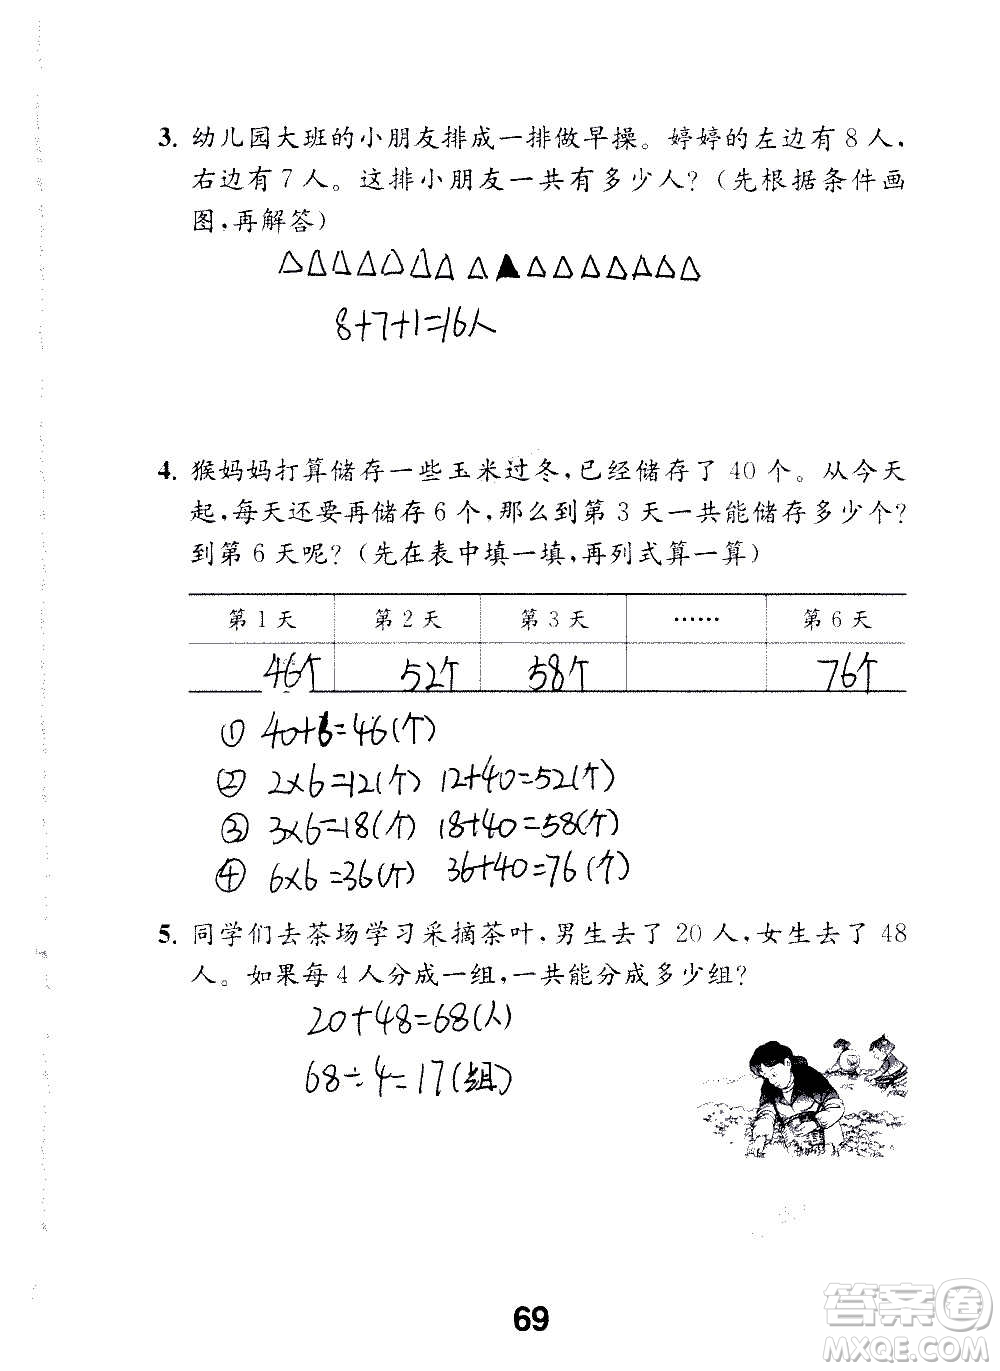 3. 幼儿园大班的小朋友排成一排做早操。婷婷的左边有8人,
右边有7人。这排小朋友一共有多少人?(先根据条件画
图,再解答)
8+7+1=16人
4. 猴妈妈打算储存一些玉米过冬,已经储存了40个。从今天
起,每天还要再储存6个,那么到第3天一共能储存多少个?
到第6天呢?(先在表中填一填,再列式算一算)
第1天 第2天 第3天 …… 第6天
46个 52个 58个 76个
① 40+6=46(个)
② 2×6=12(个) 12+40=52(个)
③ 3×6=18(个) 18+40=58(个)
④ 6×6=36(个) 36+40=76(个)
5. 同学们去茶场学习采摘茶叶,男生去了20人,女生去了48
人。如果每4人分成一组,一共能分成多少组?
20+48=68(人)
68÷4=17(组)
69
答案卷
MXQE.COM